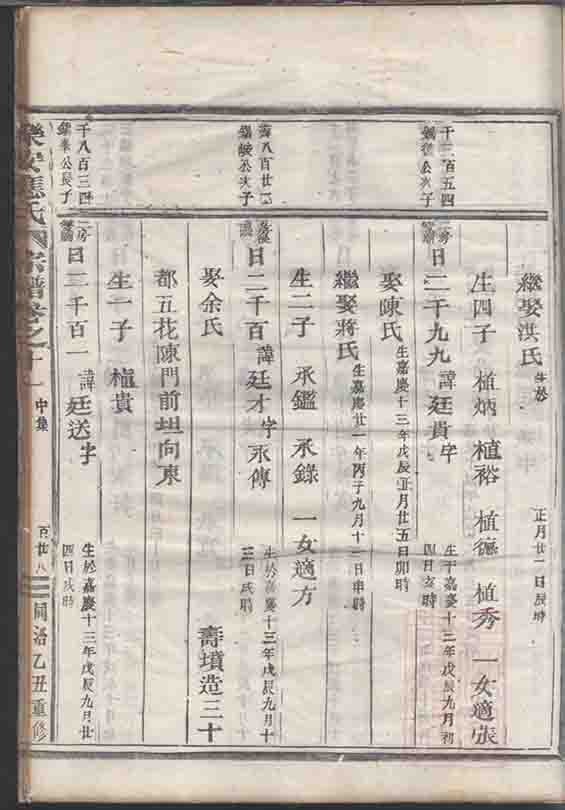 繼娶洪氏 生於 正月廿一日辰時
生四子 植炳 植裕 植德 植秀 一女適張
千 百五四
公次子
房
日二千九九 諱廷貴 字 生于嘉慶十二年戊辰九月初四日亥時
娶陳氏 生嘉慶十三年戊辰正月廿五日卯時
繼娶蔣氏 生嘉慶廿一年丙子九月十一日申時
生二子 承鑑 承錄 一女適方
八百廿
公次子
日二千百 諱廷才 字承傳 生於嘉慶十三年戊辰九月十三日戌時
娶余氏 壽墳造三十
都五花陳門前坦向東
生一子 植貴
千八百三四
公長子
房
日二千百一 諱廷送 字 生於嘉慶十三年戊辰九月廿四日戌時
樂安 氏 宗譜卷之十一 中集 百廿八 同治乙丑重修